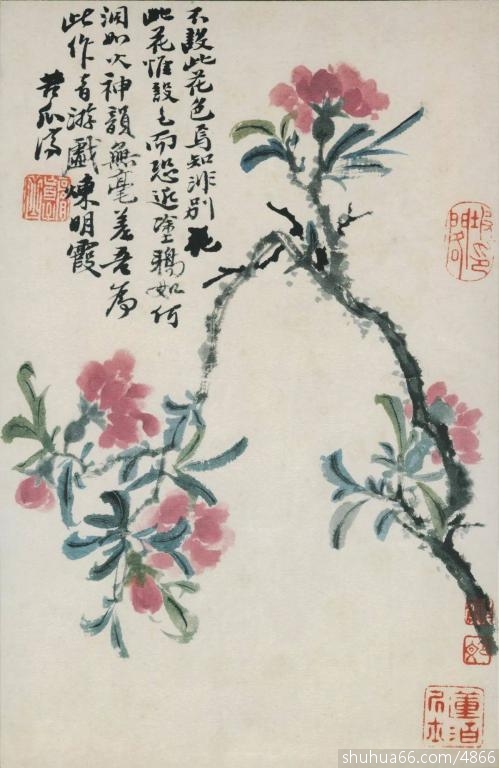 不設此花色焉知非別花
此花惟設之而恐近塗鴉如何
如火神韻無毫差吾為
此作者游戲煉明霞
苦瓜濟
shuhua66.com/4866